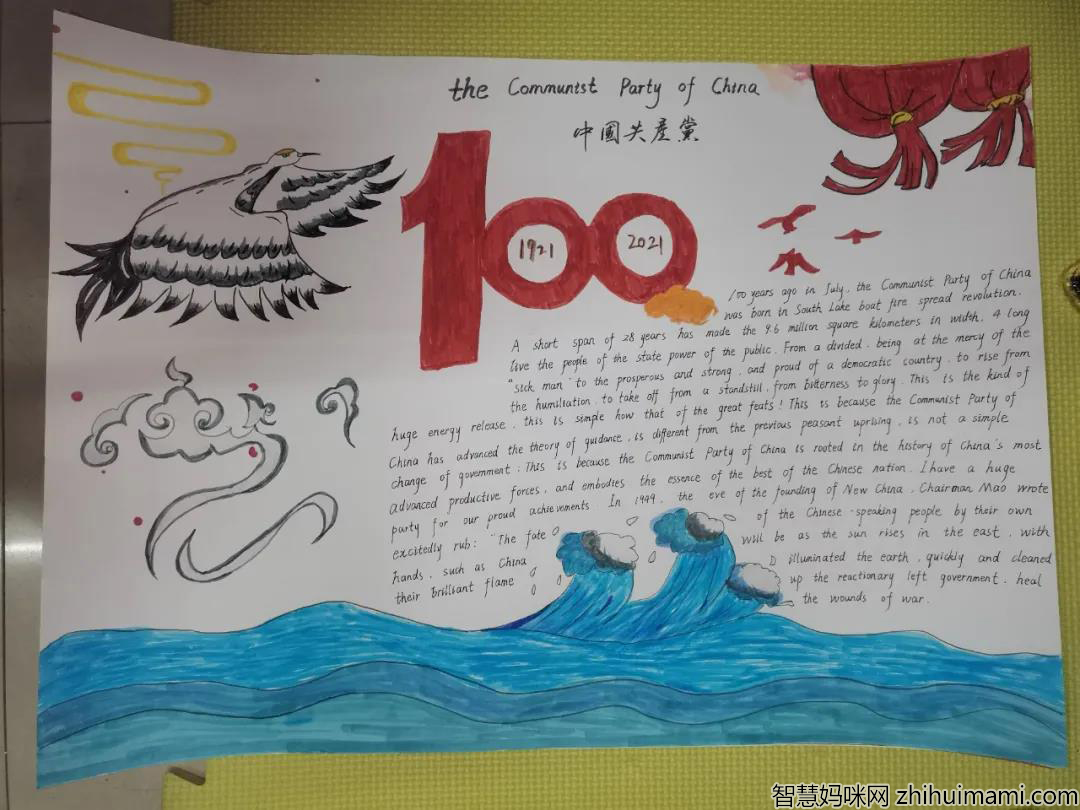 the Communist Party of China
中國共產黨
100
1921
2021
100 years ago in July, the Communist Party of China
was born in South Lake boat fire spread revolution.
A short span of 28 years has made the 9.6 million square kilometers in width, a long
live the people of the state power of the public. From a divided, being at the mercy of the
"sick man" to the prosperous and strong, and proud of a democratic country, to rise from
the humiliation, to take off from a standstill, from bitterness to glory. This is the kind of
huge energy release, this is simple how that of the great feats! This is because the Communist Party of
China has advanced the theory of guidance, is different from the previous peasant uprising, is not a simple
change of government: This is because the Communist Party of China is rooted in the history of China's most
advanced productive forces, and embodies the essence of the best of the Chinese nation. I have a huge
party for our proud achievements In 1949, the eve of the founding of New China, Chairman Mao wrote
excitedly rub: "The fate of the Chinese-speaking people by their own
hands, such as China will be as the sun rises in the east, with
their brilliant flame illuminated the earth, quickly and cleaned
up the reactionary left government, heal
the wounds of war.
智慧妈咪网 zhihuimami.com